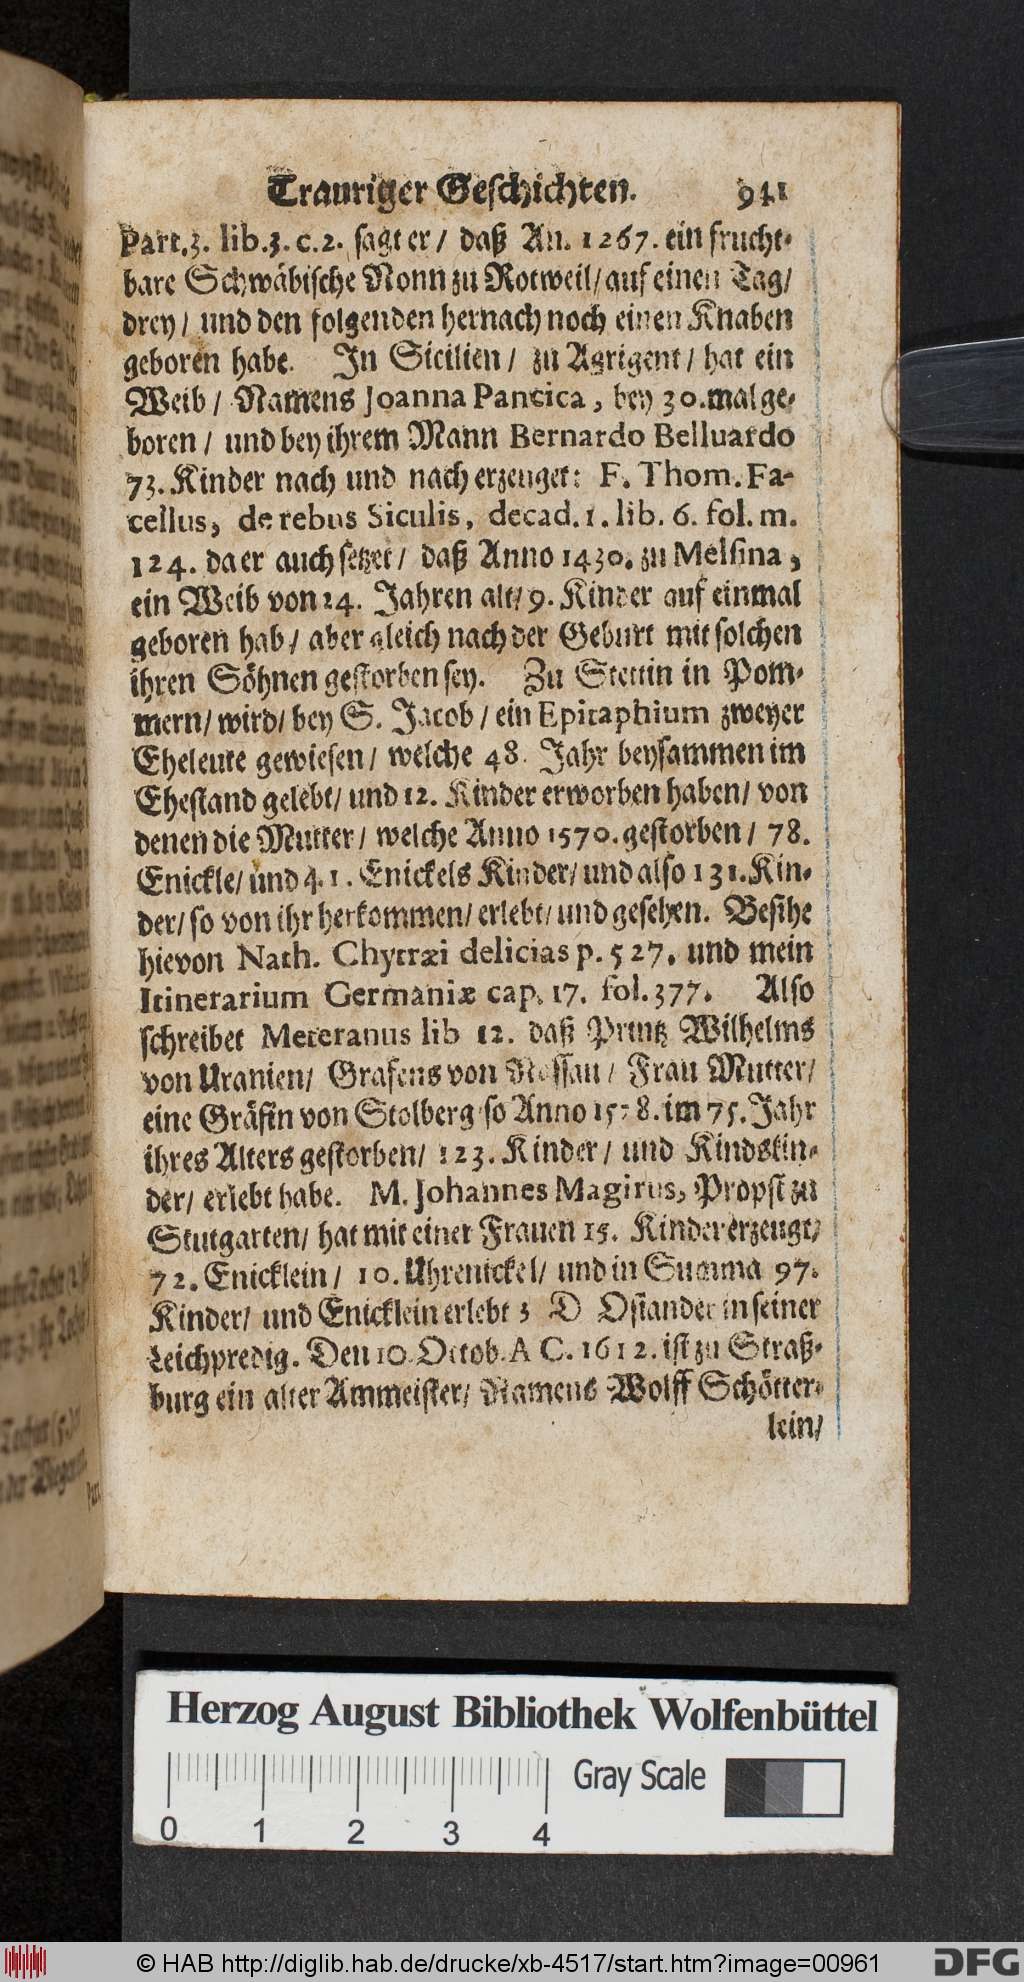 Trauriger Geschichten. 941
Part.3. lib.3. c.2. sagt er / daß An. 1267. ein frucht-
bare Schwäbische Nonn zu Rotweil / auf einen Tag /
drey / und den folgenden hernach noch einen Knaben
geboren habe. In Sicilien / zu Agrigent / hat ein
Weib / Namens Joanna Pancica, bey 30. mal ge-
boren / und bey ihrem Mann Bernardo Belluardo
73. Kinder nach und nach erzeuget: F. Thom. Fa-
cellus, de rebus Siculis, decad. 1. lib. 6. fol. m.
124. da er auch setzet / daß Anno 1430. zu Messina,
ein Weib von 24. Jahren alt / 9. Kinder auf einmal
geboren hab / aber gleich nach der Geburt mit solchen
ihren Söhnen gestorben sey. Zu Stettin in Pom-
mern / wird / bey S. Jacob / ein Epitaphium zweyer
Eheleute gewiesen / welche 48. Jahr beysammen im
Ehestand gelebt / und 12. Kinder erworben haben / von
denen die Mutter / welche Anno 1570. gestorben / 78.
Enickle / und 41. Enickels Kinder / und also 131. Kin-
der / so von ihr herkommen / erlebt / und gesehen. Besihe
hievon Nath. Chytræi delicias p. 527. und mein
Itinerarium Germaniæ cap. 17. fol. 377. Also
schreibet Meteranus lib 12. daß Printz Wilhelms
von Uranien / Grafens von Nassau / Frau Mutter /
eine Gräfin von Stolberg so Anno im 75. Jahr
ihres Alters gestorben / 123. Kinder / und Kindskin-
der / erlebt habe. M. Johannes Magirus, Propst zu
Stutgarten / hat mit einer Frauen 15. Kinder erzeugt /
72. Enicklein / 10. Uhrenickel / und in Summa 97.
Kinder / und Enicklein erlebt ; D Osiander in seiner
Leichpredig. Den 10. Octob. A C. 1612. ist zu Straß-
burg ein alter Ammeister / Namens Wolff Schötter-
lein /
Part
Herzog August Bibliothek Wolfenbüttel
Gray Scale
0 1 2 3 4
© HAB http://diglib.hab.de/drucke/xb-4517/start.htm?image=00961
DFG